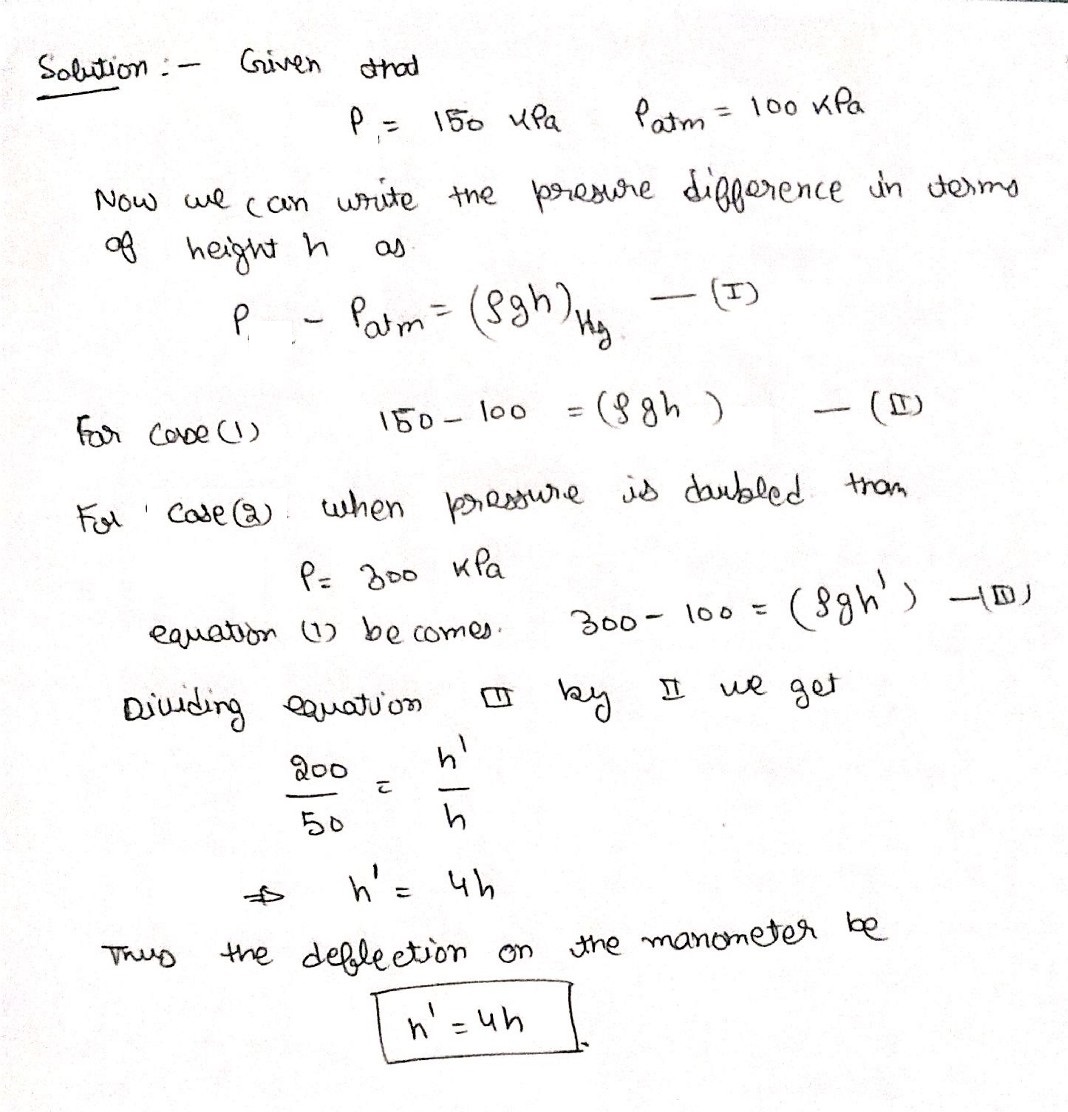 Solution :- Given that
P = 150 kPa Patm = 100 kPa
Now we can write the presure difference in terms
of height h as
P - Patm = (ρgh)Hg — (I)
For case (1) 150 - 100 = (ρgh) — (II)
For case (2) when pressure is doubled than
P = 300 kPa
equation (1) be comes. 300 - 100 = (ρgh') — (III)
Dividing equation III by II we get
200/50 = h'/h
⇒ h' = 4h
Thus the deflection on the manometer be
h' = 4h